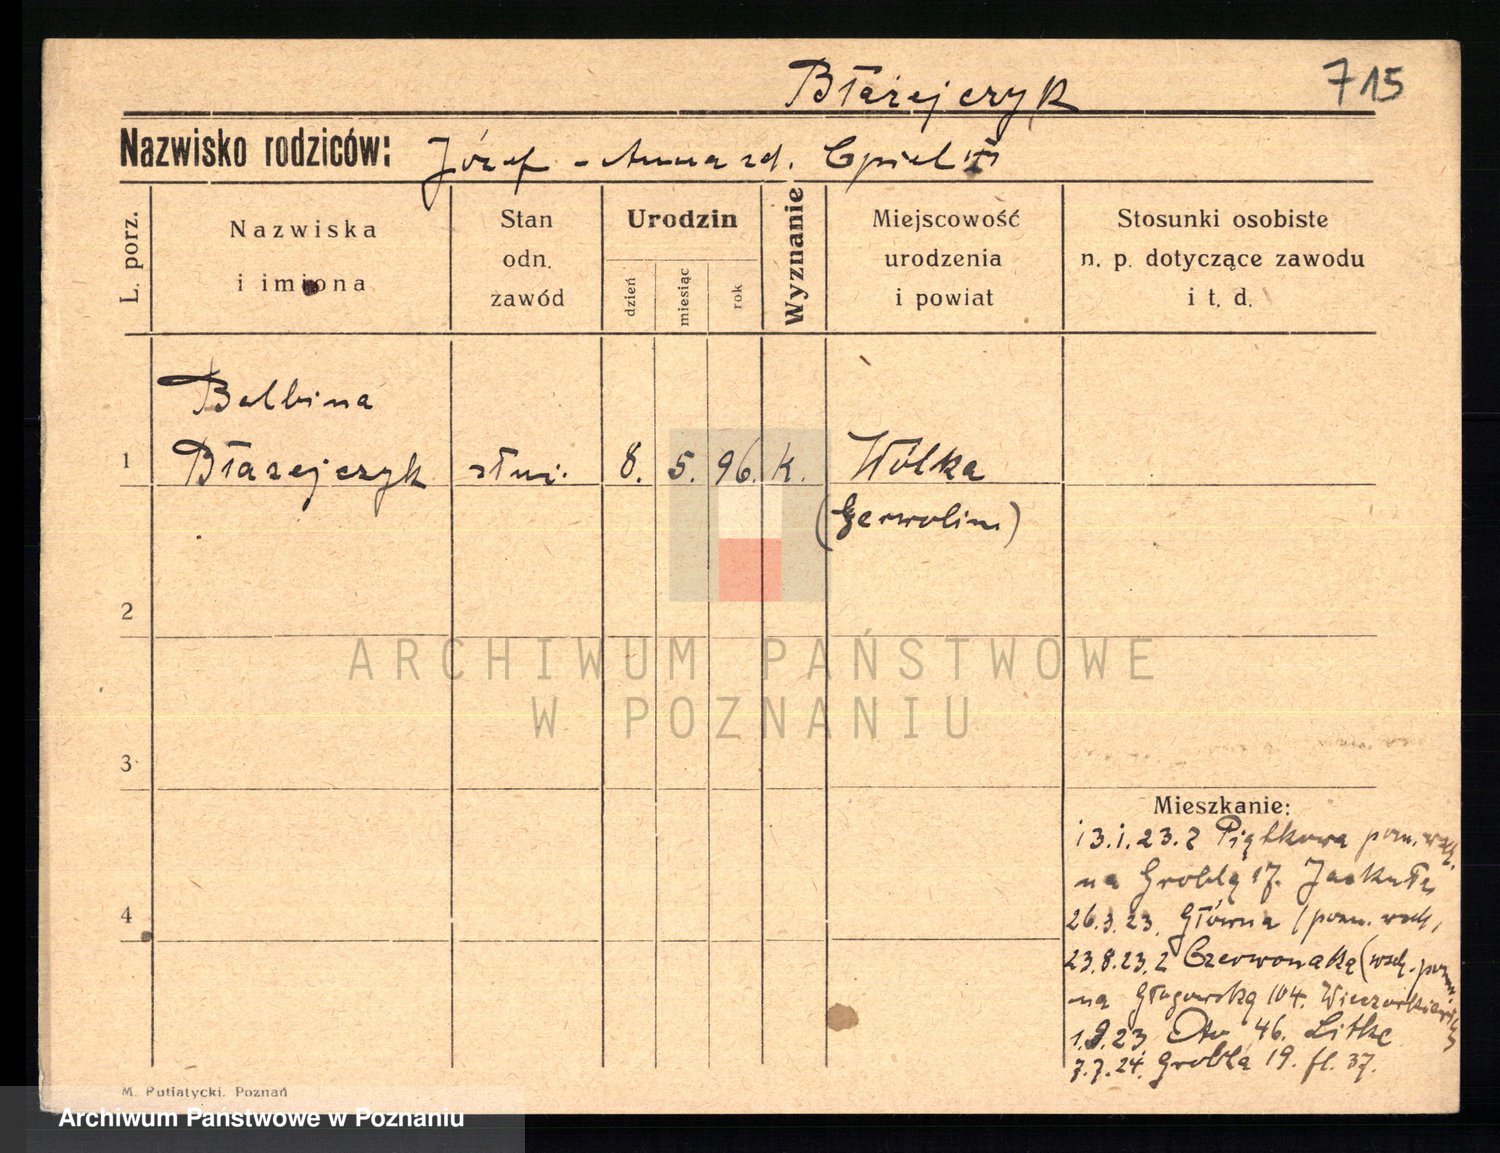 Błażejczyk 715
Nazwisko rodziców: Józef - Anna zd.
L. porz.
Nazwiska
i imiona
Stan
odn.
zawód
Urodzin
dzień
miesiąc
rok
Wyznanie
Miejscowość
urodzenia
i powiat
Stosunki osobiste
n. p. dotyczące zawodu
i t. d.
Balbina
1 Błażejczyk służ. 8. 5. 96. k. Wólka
(Gerwolin)
2
3
4
ARCHIWUM PAŃSTWOWE
W POZNANIU
Mieszkanie:
13.1.23. z Piątkowa pow. wsch.
na Groblą 17.
26.3.23. Główna (pozn. wsch.
23.8.23. z Czerwonaka (wsch. pozn.
na Głogowską 104.
1.9.23 46. Litke
7.7.24. Grobla 19. fl. 37.
M. Putiatycki. Poznań
Archiwum Państwowe w Poznaniu